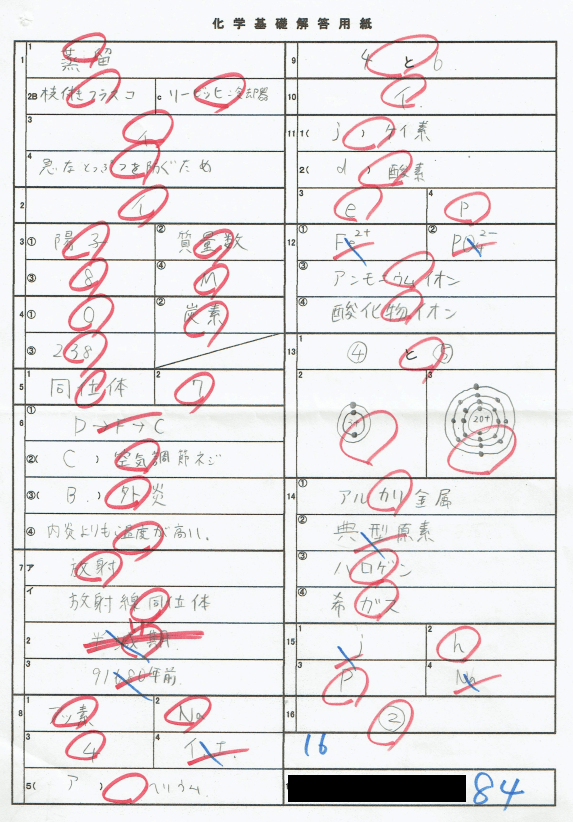 化学基礎解答用紙
1
1 蒸留
2B 枝付きフラスコ
C リービッヒ冷却器
3 イ
4 急なとっぷつを防ぐため
2 イ
3 ① 陽子
② 質量数
③ 8
④ M
4 ① 0
② 炭素
③ 238
5 1 同位体
2 7
6 ① D→F→C
②( C ) 空気調節ネジ
③( B ) 外炎
④ 内炎よりも温度が高い。
7 ア 放射
イ 放射線同位体
2 半減期
3 年前
8 1 フッ素
2 Na
3 4
4
5( ア ) ヘリウム
9 4 と 6
10 イ
11 1( j ) ケイ素
2( d ) 酸素
3 e
4 P
12 ① Fe2+
②
③ アンモニウムイオン
④ 酸化物イオン
13 1 ④ と ⑤
2 3+
3 20+
14 ① アルカリ金属
② 典型原素
③ ハロゲン
④ 希ガス
15 1 j
2 h
3 P
4 Na
16 ②
16
84